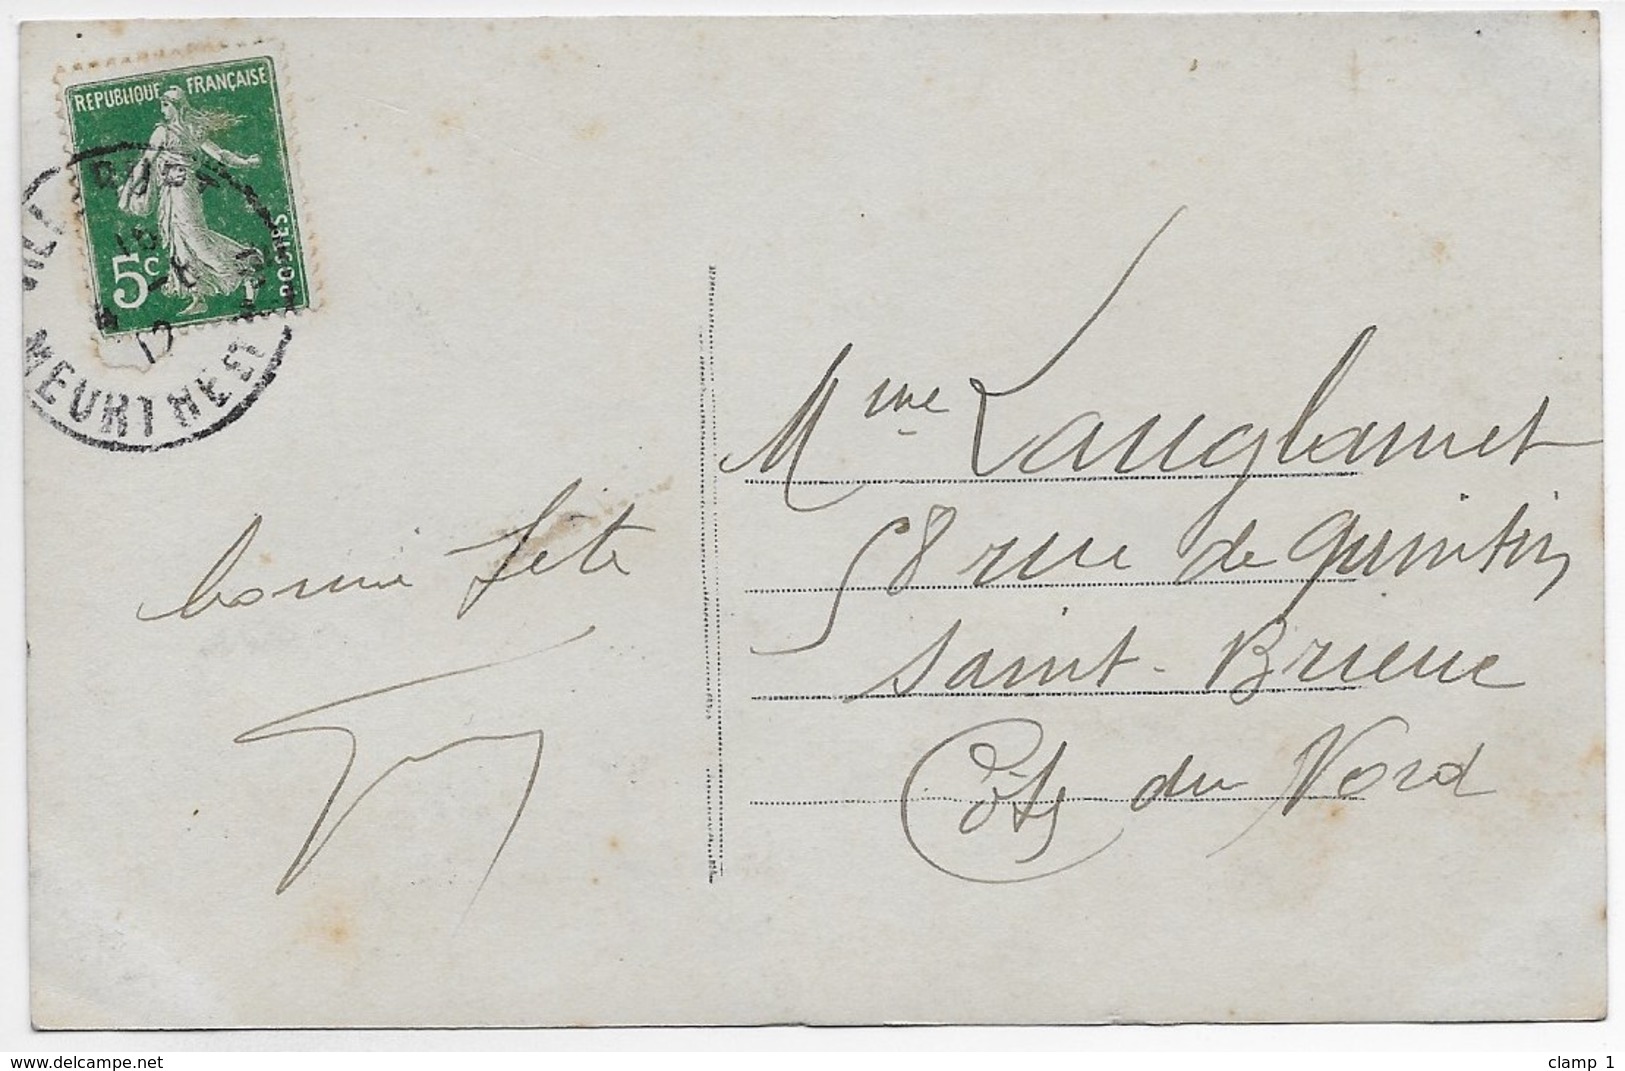 REPUBLIQUE FRANÇAISE
POSTES
5c
MEURTHE
bonne fête
Mme Langlamet
58 rue de Quintin
Saint-Brieuc
Côtes du Nord
www.delcampe.net
clamp 1